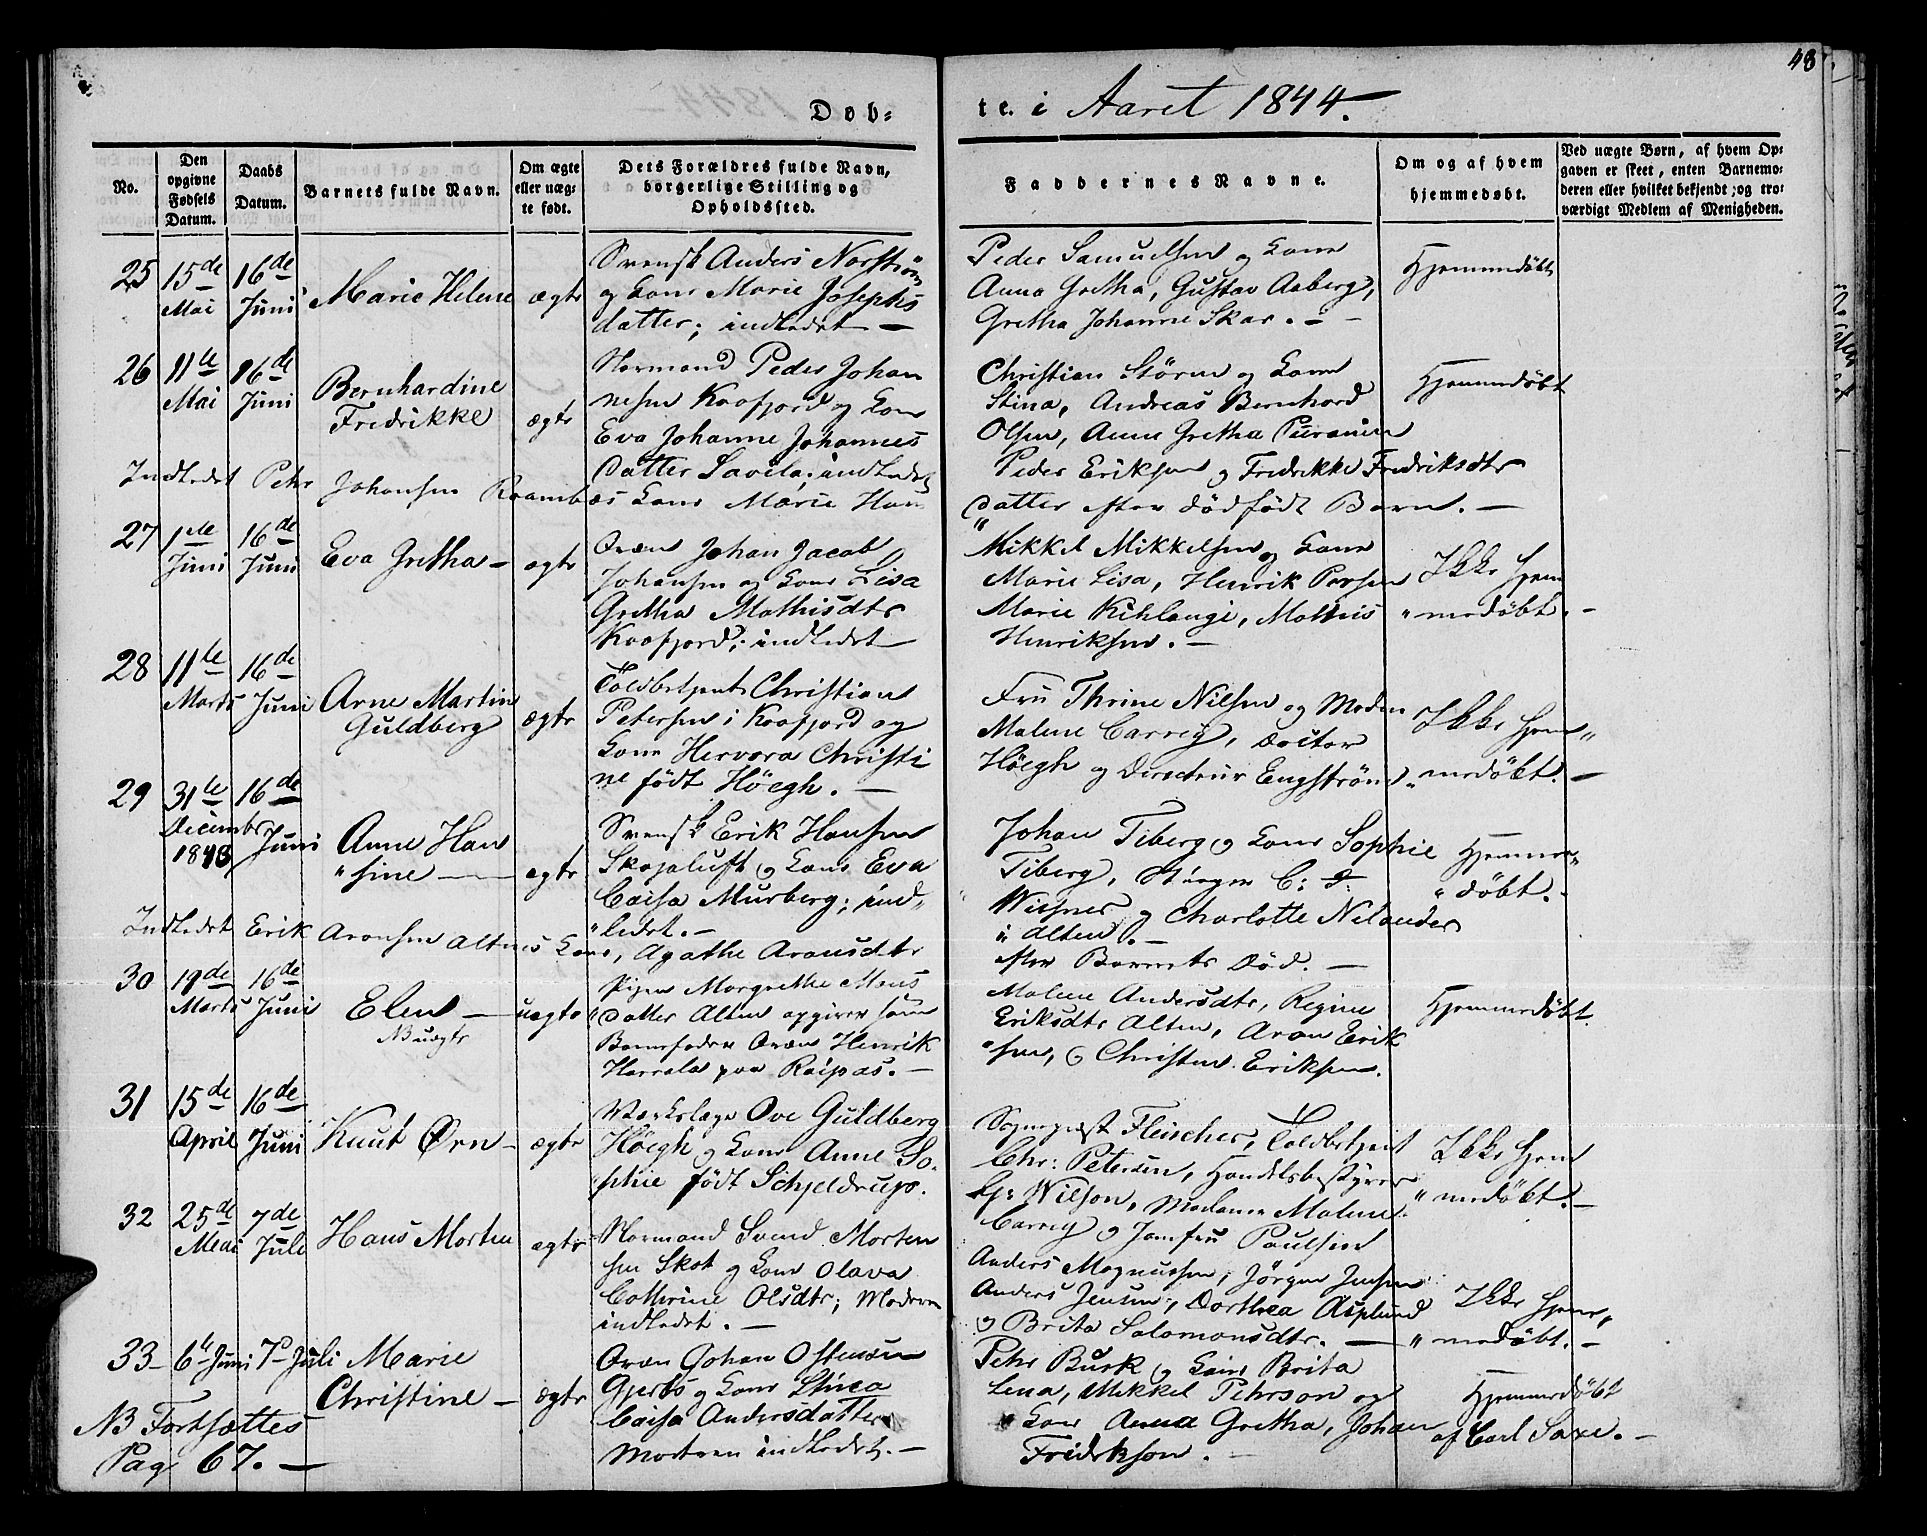 48
Døb-
te i Aaret 1844.
No.
Den opgivne Fødsels Datum.
Daabs Datum.
Barnets fulde Navn.
Om ægte eller uægte født.
Dets Forældres fulde Navn, borgerlige Stilling og Opholdssted.
Faddernes Navne.
Om og af hvem hjemmedøbt.
Ved uægte Børn, af hvem Opgaven er skeet, enten Barnemoderen eller hvilket bekjendt og troværdigt Medlem af Menigheden.
25 15de Mai 16de Juni Marie Helene ægte
Svensk Anders Norström
og Kone Marie Josephs
datter; indledet —
Peder Samuelsen og Kone
Anna Gretha, Gustav Aaberg,
Gretha Johanne Skar. —
Hjemmedøbt
26 11te Mai 16de Juni Bernhardine
Fredrikke ægte
Normand Peder Johan
nesen Kaafjord og Kone
Eva Johanne Johannes
datter Savila; indledet
Christian Störm og Kone
Stina, Andreas Bernhard
Olsen, Anne Gretha
Peder Eriksen og Fredrikke Fredriksdtr
Hjemmedøbt
Indledet Peter Johansen Raambaes Kone Marie Hans
datter efter dödfödt Barn. —
27 1ste Juni 16de Juni Eva Gretha — ægte
Qvæn Johan Jacob
Johansen og Kone Lisa
Gretha Mathisdtr
Kaafjord; indledet —
Mikkel Mikkelsen og Kone
Marie Lisa, Henrik Persen
Marie Kihlangi, Mathis
Henriksen. —
Ikke hjem
medøbt. —
28 11te Marts 16de Juni Arne Martin
Guldberg ægte
Toldbetjent Christian
Petersen i Kaafjord og
Kone Hervora Christi
ne født Höegh. —
Fru Thrine Nilsen og Madm
Malene Carrey, Doctor
Höegh og Directeur Engström
Ikke hjem
medøbt. —
29 31te December 1843 16de Juni Anne Han
sine — ægte
Svensk Erik Hansen
Skojaluft og Kone Eva
Caisa Murberg; ind
ledet. —
Johan Tiberg og Kone Sophie
Tiberg, C: F:
og Charlotte Nilander
i Alten. —
Hjemme
døbt. —
Indledet Erik Aronsen Altnes Kone, Agathe Aronsdtr
efter Barnets Död. —
30 19de Marts 16de Juni Elen — uægte
NB uægte
Pigen Margrethe Mons
datter Alten opgiver som
Barnefader Qvæn Henrik
Harrala paa Raipas. —
Malene Andersdtr, Regine
Eriksdtr Alten, Aron Erik
sen, og Christen Eriksen.
Hjemmedøbt.
31 15de April 16de Juni Knut Ørn — ægte
Værkslæge Ove Guldberg
Höegh og Kone Anne So
phie født Schjelderup.
Sognepræst Fleischer, Toldbetjent
Chr: Petersen, Handelsbestyrer
Wilson, Madame Malene
Carrey og Jomfru Paulsen
Ikke hjem
medøbt. —
32 25de Mai 7de Juli Hans Morten ægte
Normand Svend Morten
sen Skot og Kone Olava
Cathrine Olsdtr; Moderen
indledet. —
Anders Magnussen, Jörgen Jensen
Anders Jensen, Dorthea Asplund
og Brita Salomonsdtr. —
Ikke hjem
medøbt. —
33 — 6te Juni 7de Juli Marie
Christine — ægte
Qvæn Johan Ostensen
Gjerts og Kone Stina
Caisa Andersdatter
Moderen indledet. —
Pehr Burk og Kone Brita
Lena, Mikkel Pehrson og
Kone Anna Gretha, Johan
Fredrikson. —
Hjemmedøbt
af Carl Saxe. —
NB Fortsættes
Pag 67. —